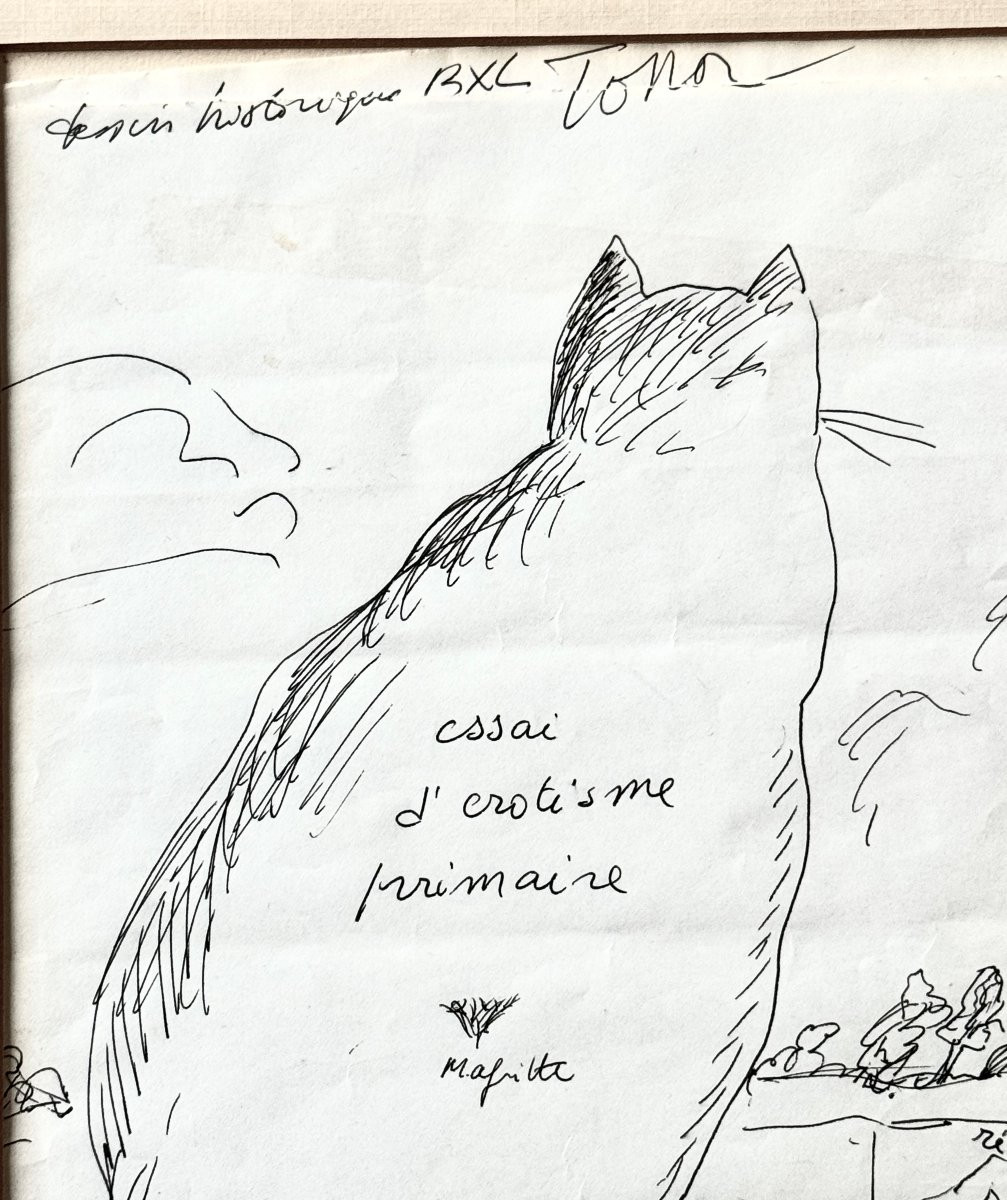 dessin historique BXL Topor
essai
d'erotisme
primaire
Magritte
ré